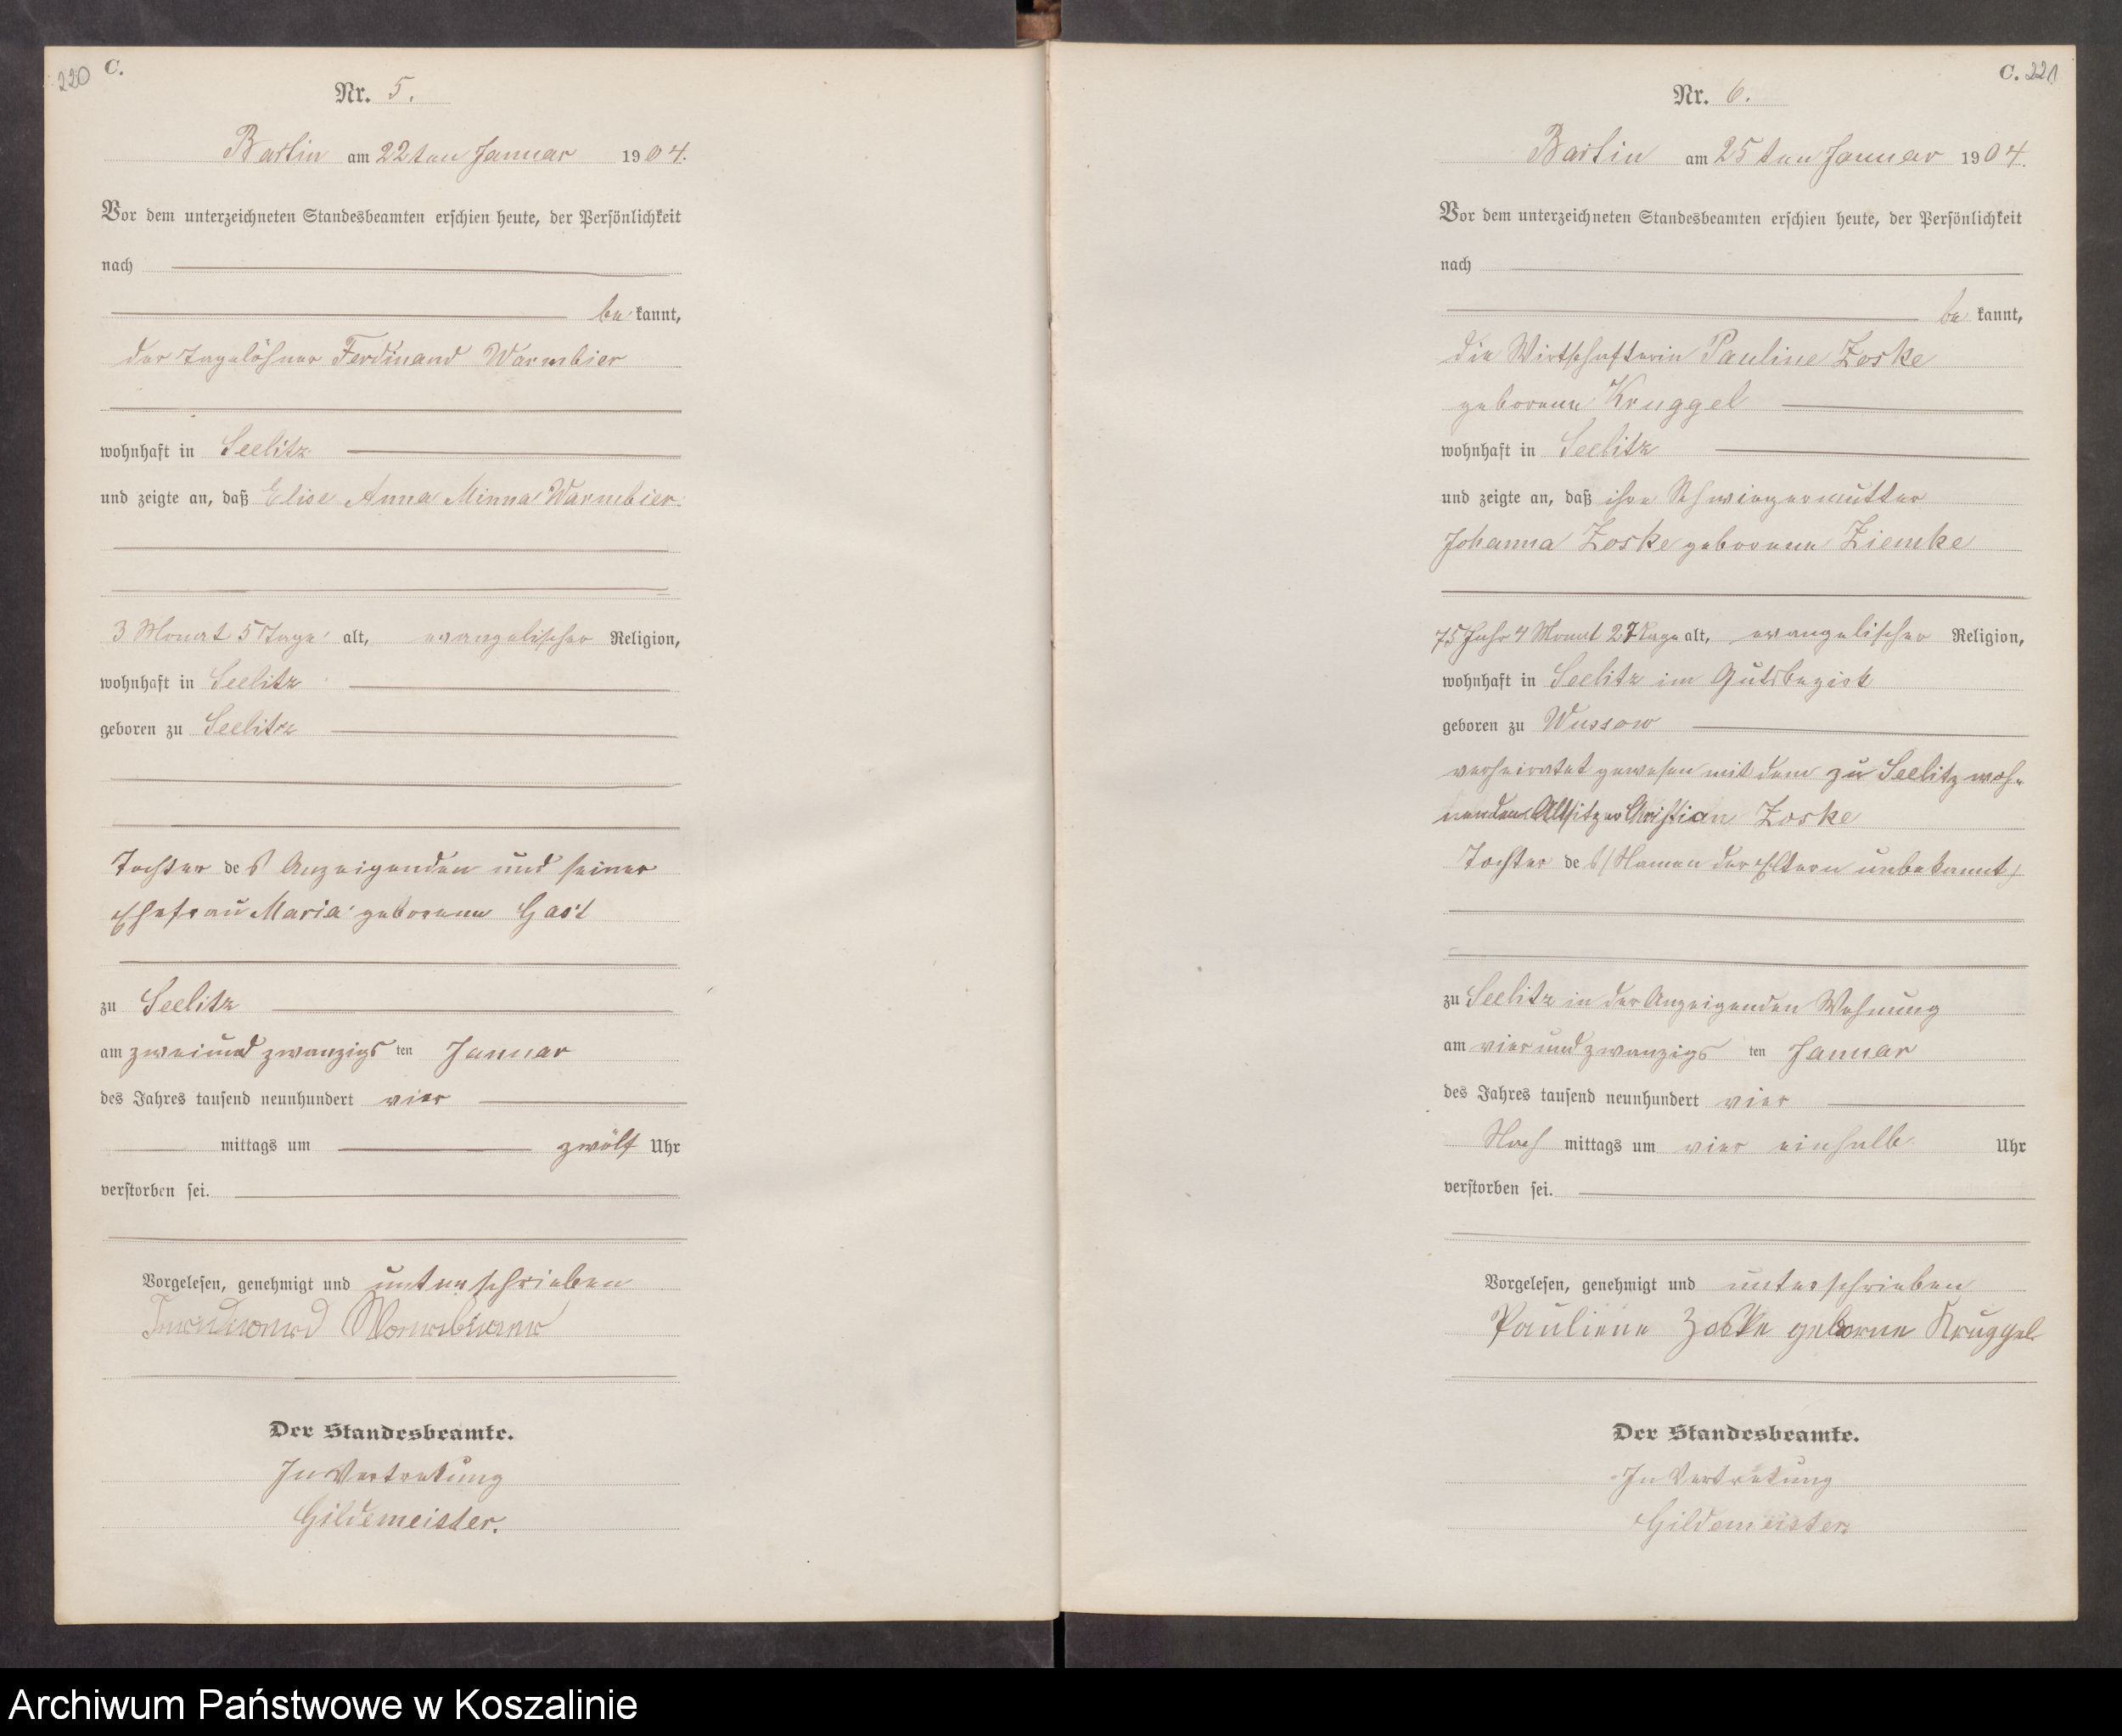 220 C.
Nr. 5.
Bartin am 22ten Januar 1904.
Vor dem unterzeichneten Standesbeamten erschien heute, der Persönlichkeit
nach
be kannt,
der Tagelöhner Ferdinand Warmbier
wohnhaft in Seelitz
und zeigte an, daß Elise Anna Minna Warmbier
3 Monat 5 Tage alt, evangelischer Religion,
wohnhaft in Seelitz
geboren zu Seelitz
Tochter des Anzeigenden und seiner
Ehefrau Maria geborenen Gast
zu Seelitz
am zweiund zwanzigs ten Januar
des Jahres tausend neunhundert vier
mittags um zwölf Uhr
verstorben sei.
Vorgelesen, genehmigt und unterschrieben
Warmbier
Der Standesbeamte.
In Vertretung
Gildemeister.
C. 221
Nr. 6.
Bartin am 25ten Januar 1904.
Vor dem unterzeichneten Standesbeamten erschien heute, der Persönlichkeit
nach
be kannt,
die Wirtschafterin Pauline Zoske
geborene Kruggel
wohnhaft in Seelitz
und zeigte an, daß ihre Schwiegermutter
Johanna Zoske geborene Ziemke
75 Jahr 4 Monat 27 Tage alt, evangelischer Religion,
wohnhaft in Seelitz im Gutsbezirk
geboren zu Wussow
verheiratet gewesen mit dem zu Seelitz woh-
nenden Altsitzer Christian Zoske
Tochter des (Namen der Eltern unbekannt)
zu Seelitz in der Anzeigenden Wohnung
am vierundzwanzigs ten Januar
des Jahres tausend neunhundert vier
Nach mittags um vier einhalb Uhr
verstorben sei.
Vorgelesen, genehmigt und unterschrieben
Pauliene Zoske geborne Kruggel
Der Standesbeamte.
In Vertretung
Gildemeister
Archiwum Państwowe w Koszalinie